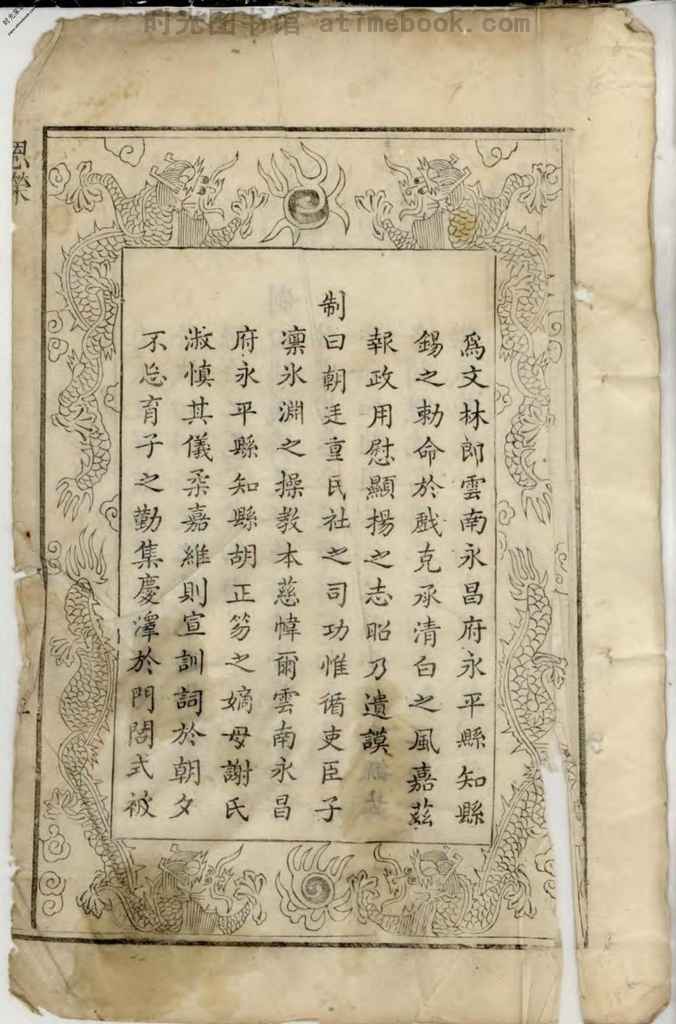 时光图书馆 atimebook.com
恩榮
為文林郎雲南永昌府永平縣知縣
錫之勅命於戲克承清白之風嘉茲
報政用慰顯揚之志昭乃遺謨
制曰朝廷重民社之司功惟循吏臣子
凜氷淵之操教本慈幃爾雲南永昌
府永平縣知縣胡正笏之嫡母謝氏
淑慎其儀柔嘉維則宣訓詞於朝夕
不忘育子之勤集慶澤於門閭式被